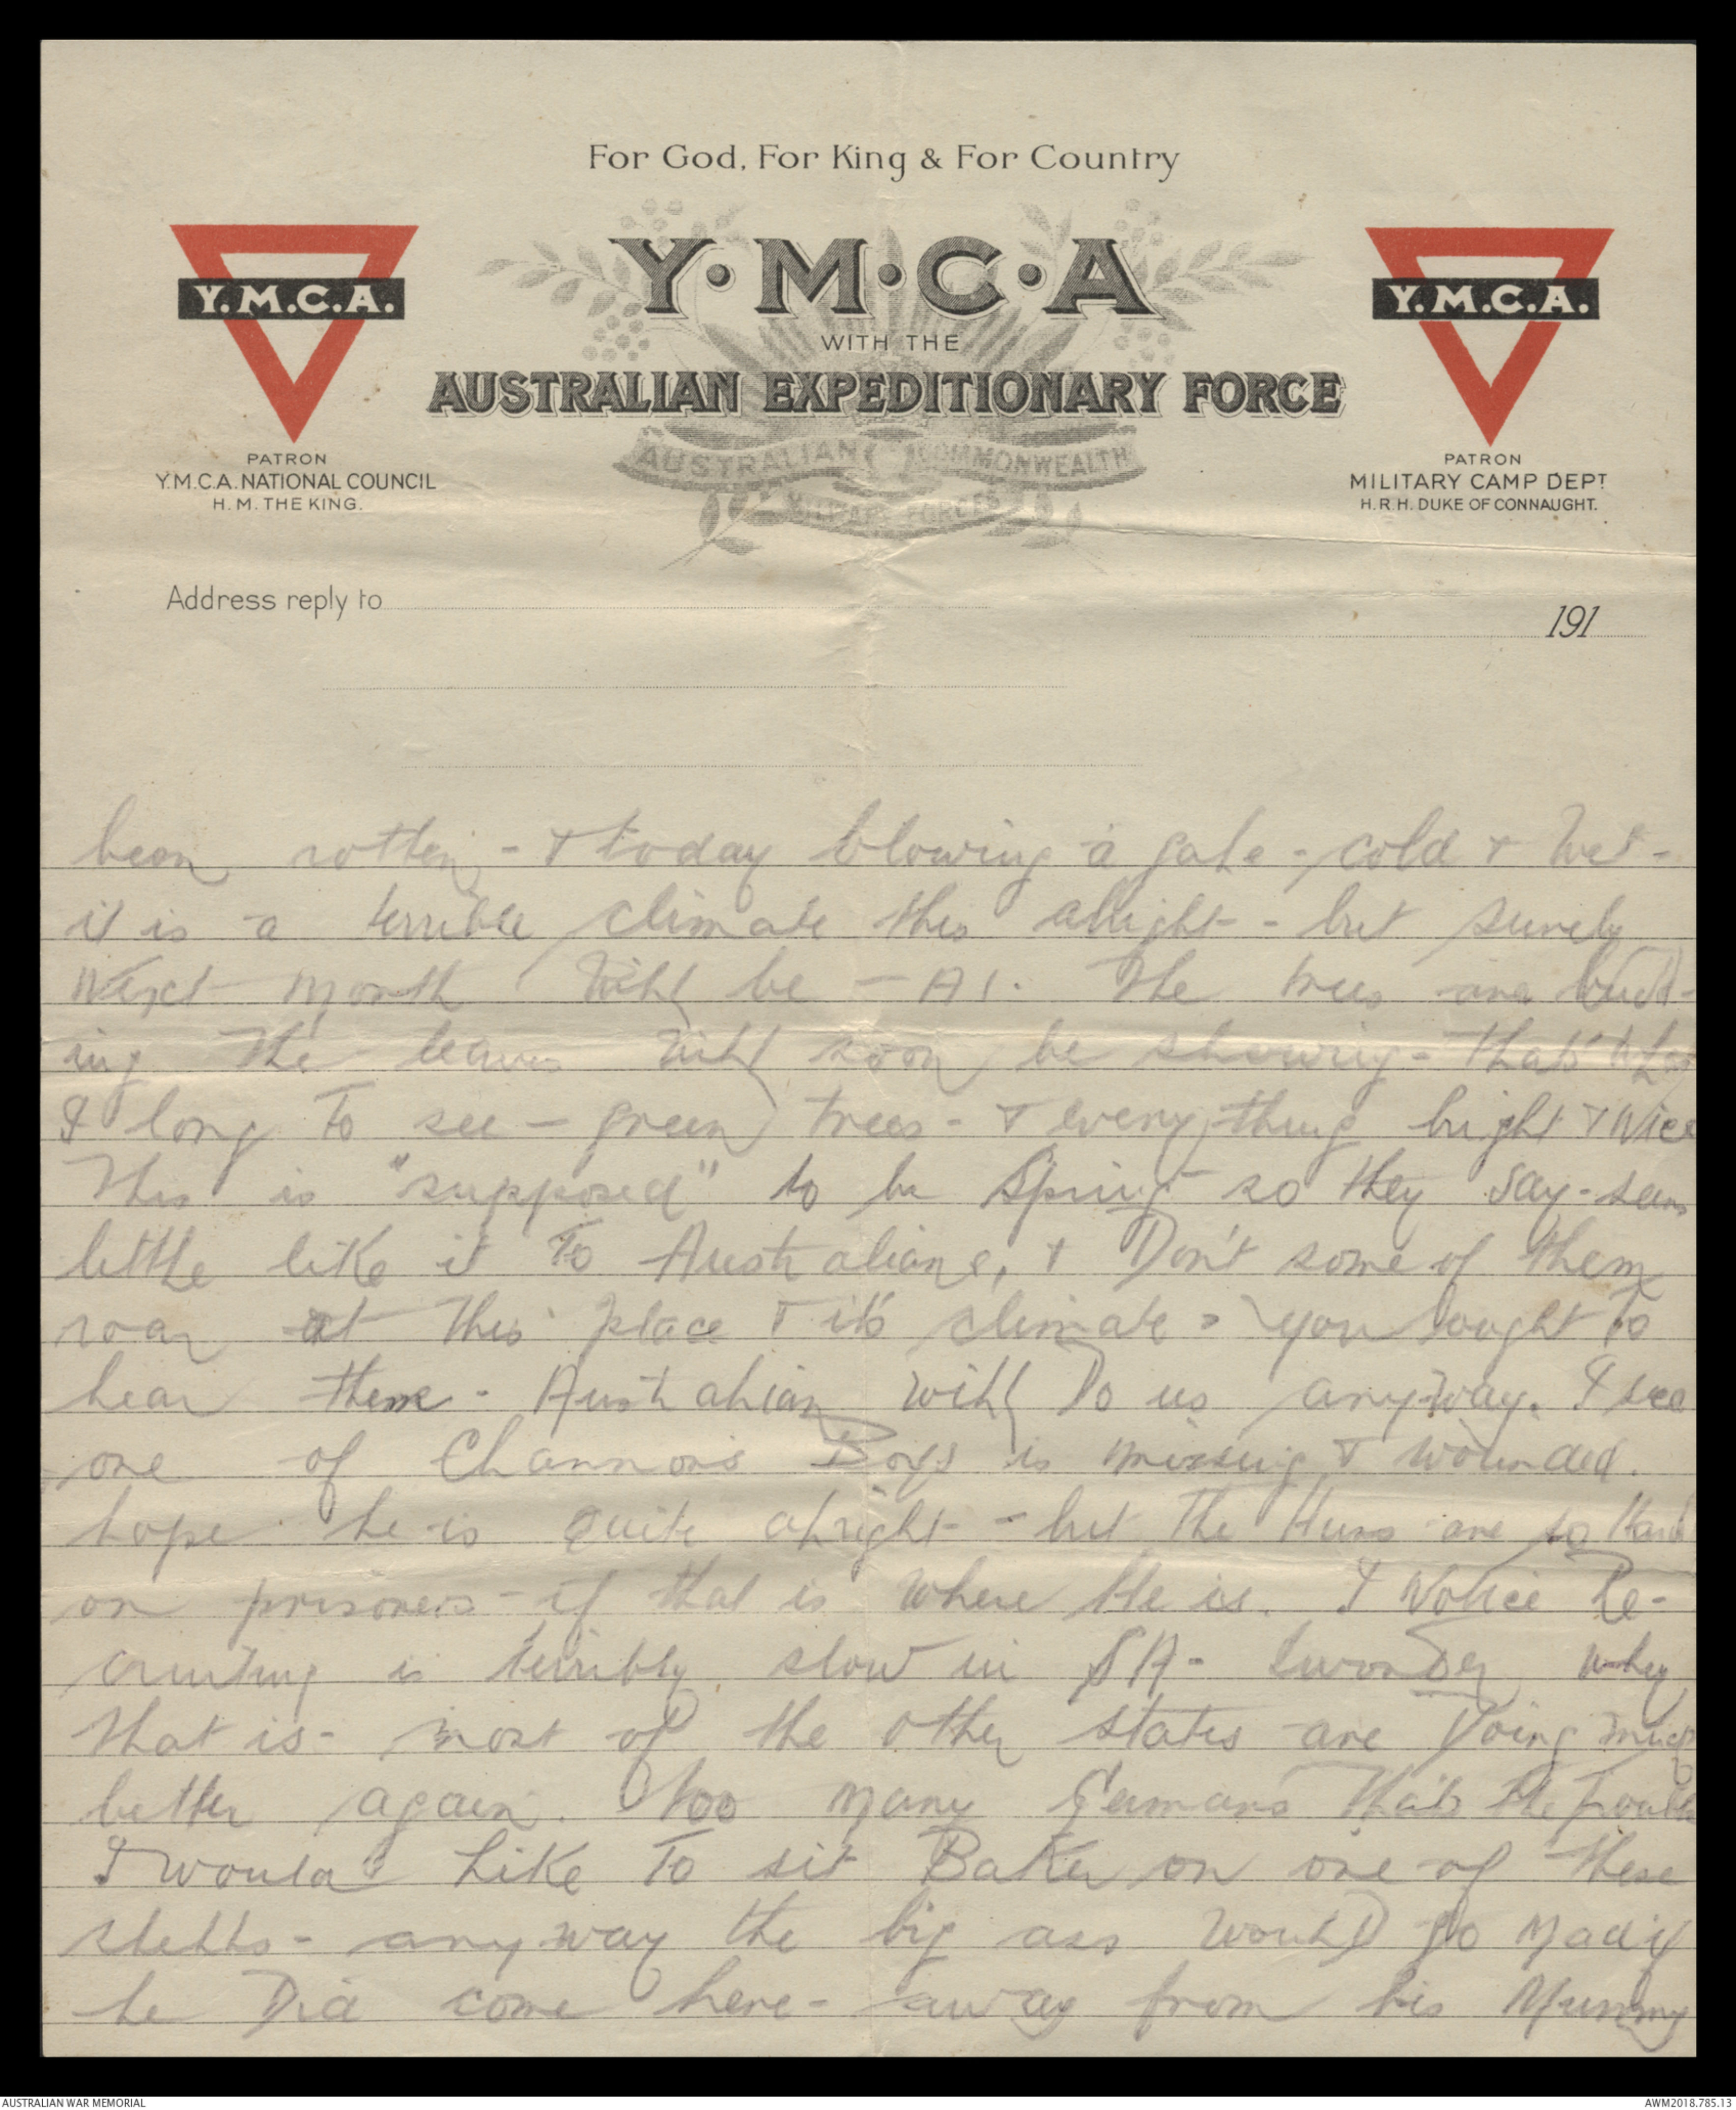 For God, For King & For Country
Y.M.C.A.
Y·M·C·A
Y.M.C.A.
WITH THE
AUSTRALIAN EXPEDITIONARY FORCE
AUSTRALIAN COMMONWEALTH
MILITARY FORCES
PATRON
Y.M.C.A. NATIONAL COUNCIL
H.M. THE KING.
PATRON
MILITARY CAMP DEPT
H.R.H. DUKE OF CONNAUGHT.
Address reply to
191
been rotten - & today blowing a gale - cold & Wet -
it is a terrible climate this allright - but surely
Next Month Will be - A1. The trees are budd-
ing The leaves Will soon be showing - thats what
I long To see - green trees - & every thing bright & Nice
This is "supposed" to be Spring so they say - seems
little like it To Australians, & Don't some of them
roar at This place & its climate - you ought To
hear them - Australian Will Do us anyway. I see
one of Channons Boys is missing & wounded.
hope he is quite alright - but The Huns are so Hard
on prisoners - if that is where He is. I Notice Re-
cruiting is terribly slow in SA - I wonder why
that is - most of the other states are Doing much
better again. Too Many Germans Thats the trouble
I would Like To sit Baker on one of These
shells - anyway the big ass Would go Mad if
he Did come here - away from his Mummy
AUSTRALIAN WAR MEMORIAL
AWM2018.785.13